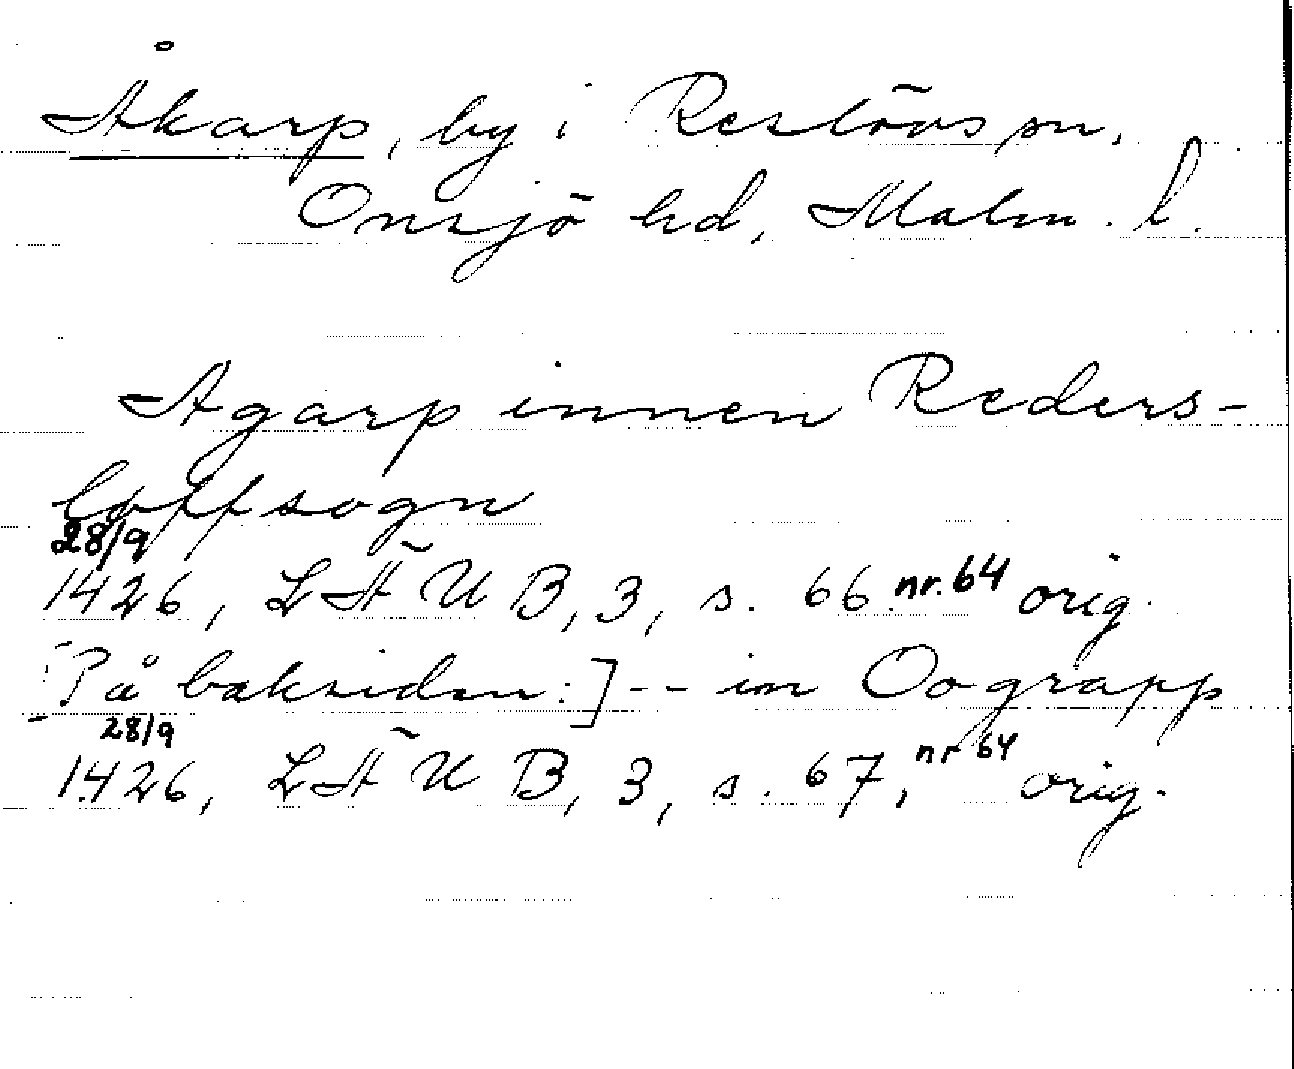 Åkarp, by i Reslövs sn,
Onsjö hd, Malm. l.
Agarp innen Reders-
loffsogn
28/9
1426, LÄUB, 3, s. 66 nr. 64 orig.
[På baksidan:] -- im Oograpp
28/9
1426, LÄUB, 3, s. 67, nr 64 orig.